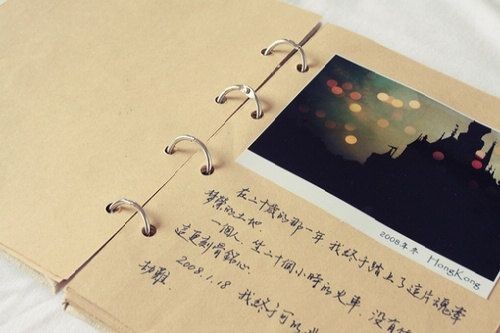 2008.年冬 HongKong
在二十歲的那一年 我終于踏上了這片魂牽
夢縈的土地.
一個人. 坐二十個小時的火車. 沒有
這是刻骨銘心.
2008.1.18 我終于可以